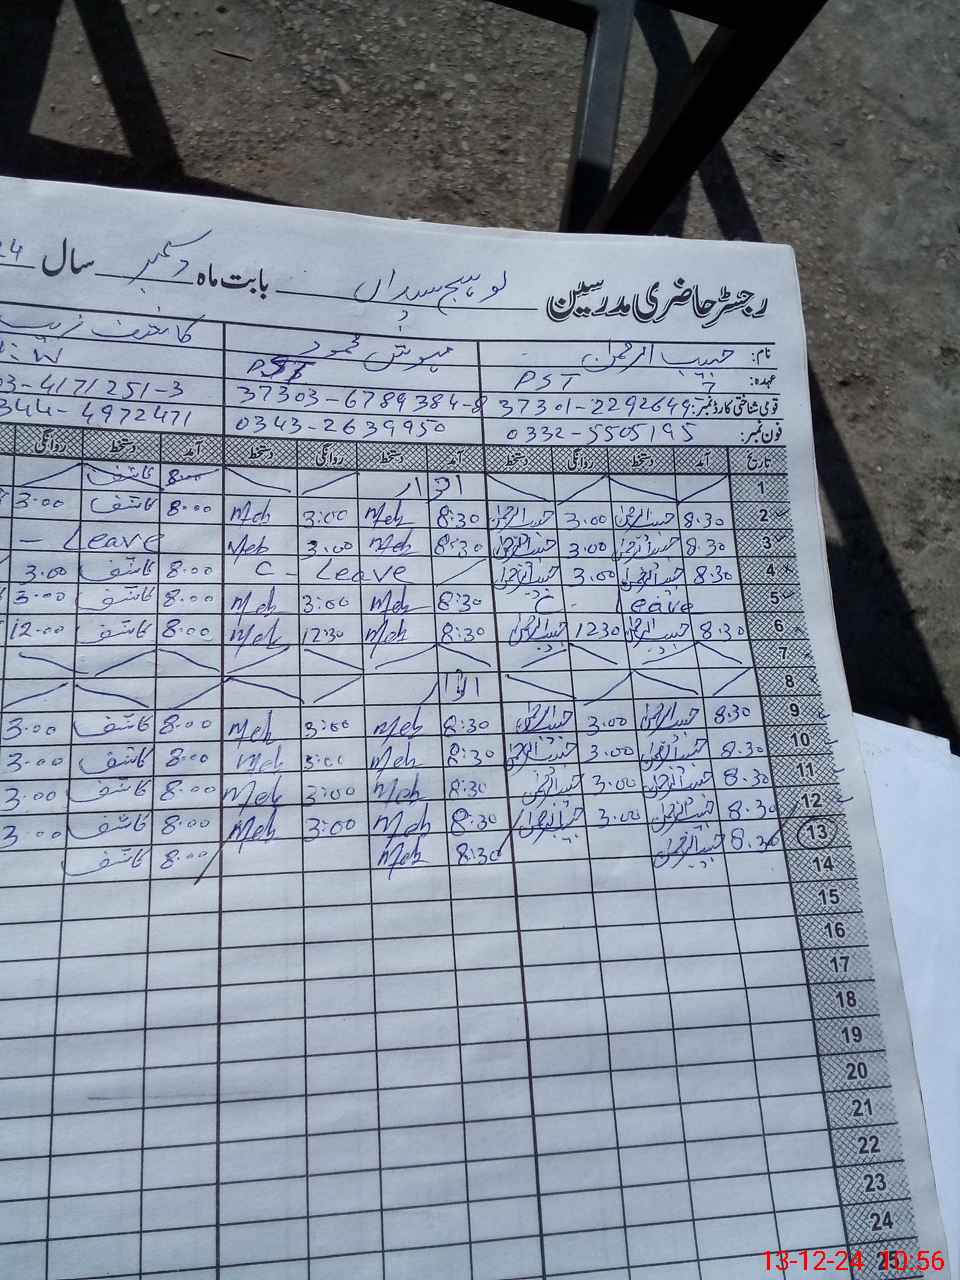 رجسٹر حاضری مدرسین بابت ماہ دسمبر سال 24
نام: حبیب الرحمن مہوش محمود کاشف
عہدہ: PST PST
قومی شناختی کارڈ نمبر: 37301-2292649 37303-6789384-8 03-4171251-3
فون نمبر: 0332-5505195 0343-2639950 344-4972471
تاریخ آمد دستخط روانگی دستخط آمد دستخط روانگی دستخط آمد دستخط
1 اتوار 8:00 کاشف
2 8.30 حبیب الرحمن 3.00 حبیب الرحمن 8:30 Meh 3:00 Meh 8.00 کاشف 3.00
3 8.30 حبیب الرحمن 3.00 حبیب الرحمن 8:30 Meh 3:00 Meh - Leave
4 8.30 حبیب الرحمن 3.00 حبیب الرحمن C - Leave 8.00 کاشف 3.00
5 Leave 8:30 Meh 3:00 Meh 8.00 کاشف 3.00
6 8.30 حبیب الرحمن 1230 حبیب الرحمن 8:30 Meh 12:30 Meh 8.00 کاشف 12.00
7
8 اتوار
9 8.30 حبیب الرحمن 3.00 حبیب الرحمن 8:30 Meh 3:00 Meh 8.00 کاشف 3.00
10 8.30 حبیب الرحمن 3.00 حبیب الرحمن 8:30 Meh 3:00 Meh 8.00 کاشف 3.00
11 8.30 حبیب الرحمن 3.00 حبیب الرحمن 8:30 Meh 3:00 Meh 8.00 کاشف 3.00
12 8.30 حبیب الرحمن 3.00 حبیب الرحمن 8:30 Meh 3:00 Meh 8.00 کاشف 3.00
13 8.30 حبیب الرحمن 8:30 Meh 8.00 کاشف
14
15
16
17
18
19
20
21
22
23
24
25
13-12-24 10:56